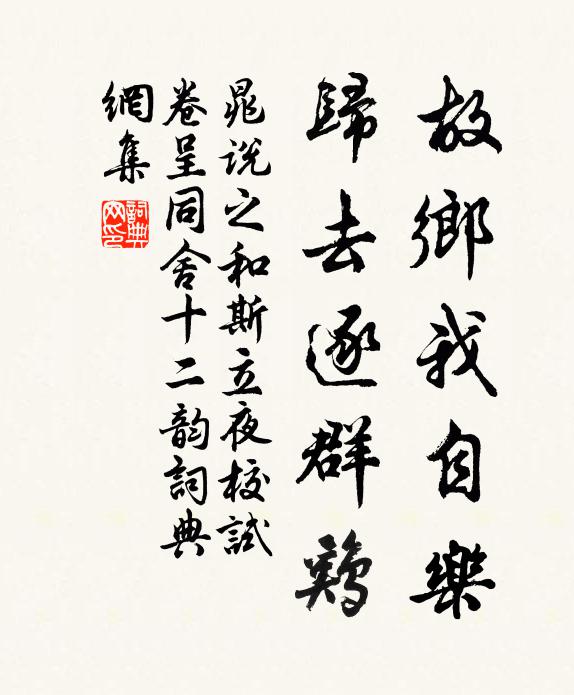 故鄉我自樂
歸去逐群鷄
晁說之和斯立夜校試
卷呈同舍十二韵詞典
網集
詞典网印